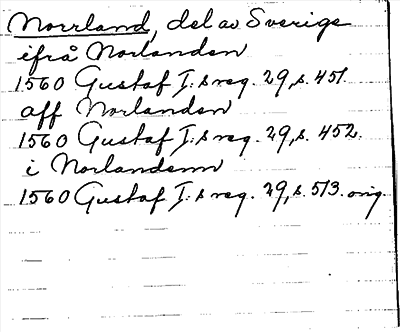 Norrland, del av Sverige
ifrå Norlanden
1560 Gustaf I:s reg. 29, s. 451.
aff Norlanden
1560 Gustaf I:s reg. 29, s. 452.
i Norlandenn
1560 Gustaf I:s reg. 29, s. 513. orig.